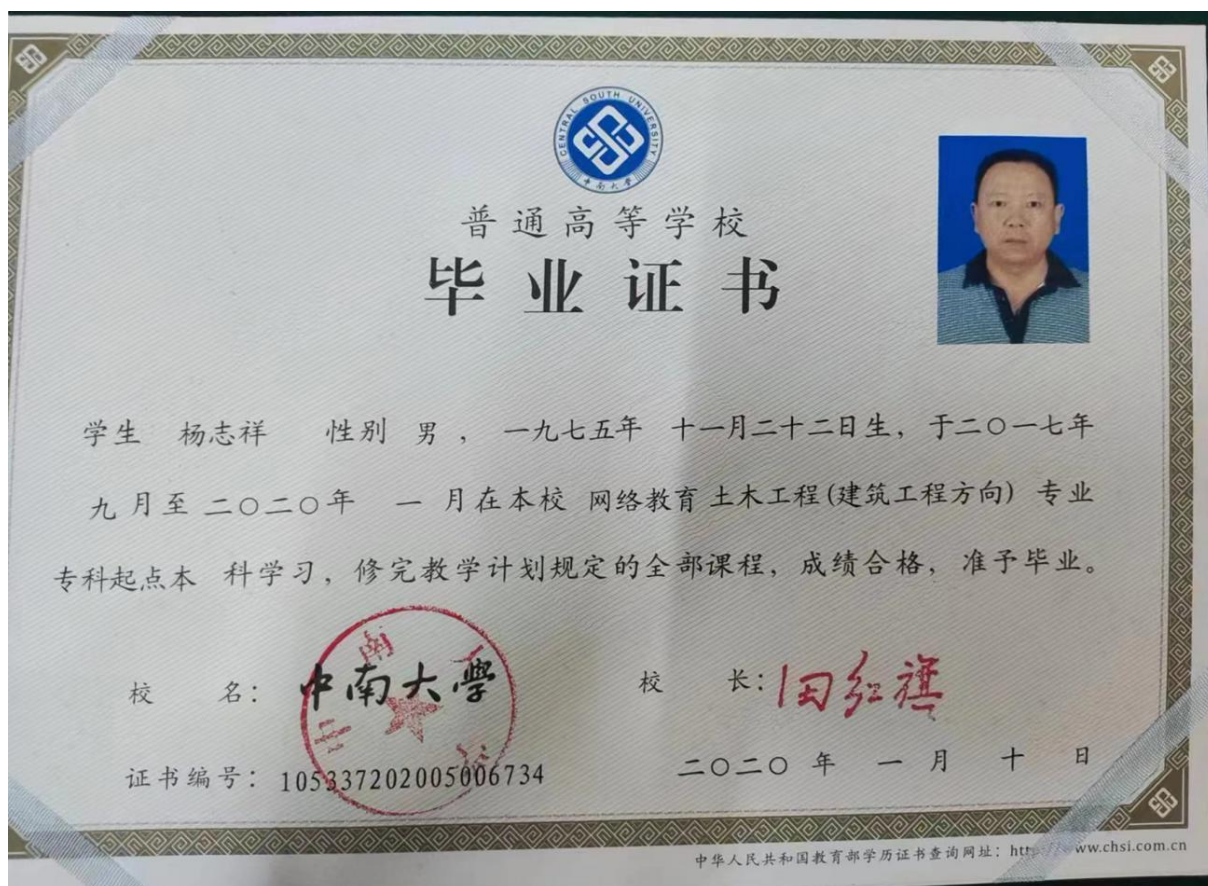 CENTRAL SOUTH UNIVERSITY
中南大学
普通高等学校
毕业证书
学生 杨志祥 性别 男 ， 一九七五年 十一月二十二日生，于二〇一七年
九月至二〇二〇年 一 月在本校 网络教育 土木工程(建筑工程方向) 专业
专科起点本 科学习，修完教学计划规定的全部课程，成绩合格，准予毕业。
校 名： 中南大學 校 长： 田红旗
证书编号： 105337202005006734 二〇二〇年 一 月 十 日
中华人民共和国教育部学历证书查询网址：http://www.chsi.com.cn